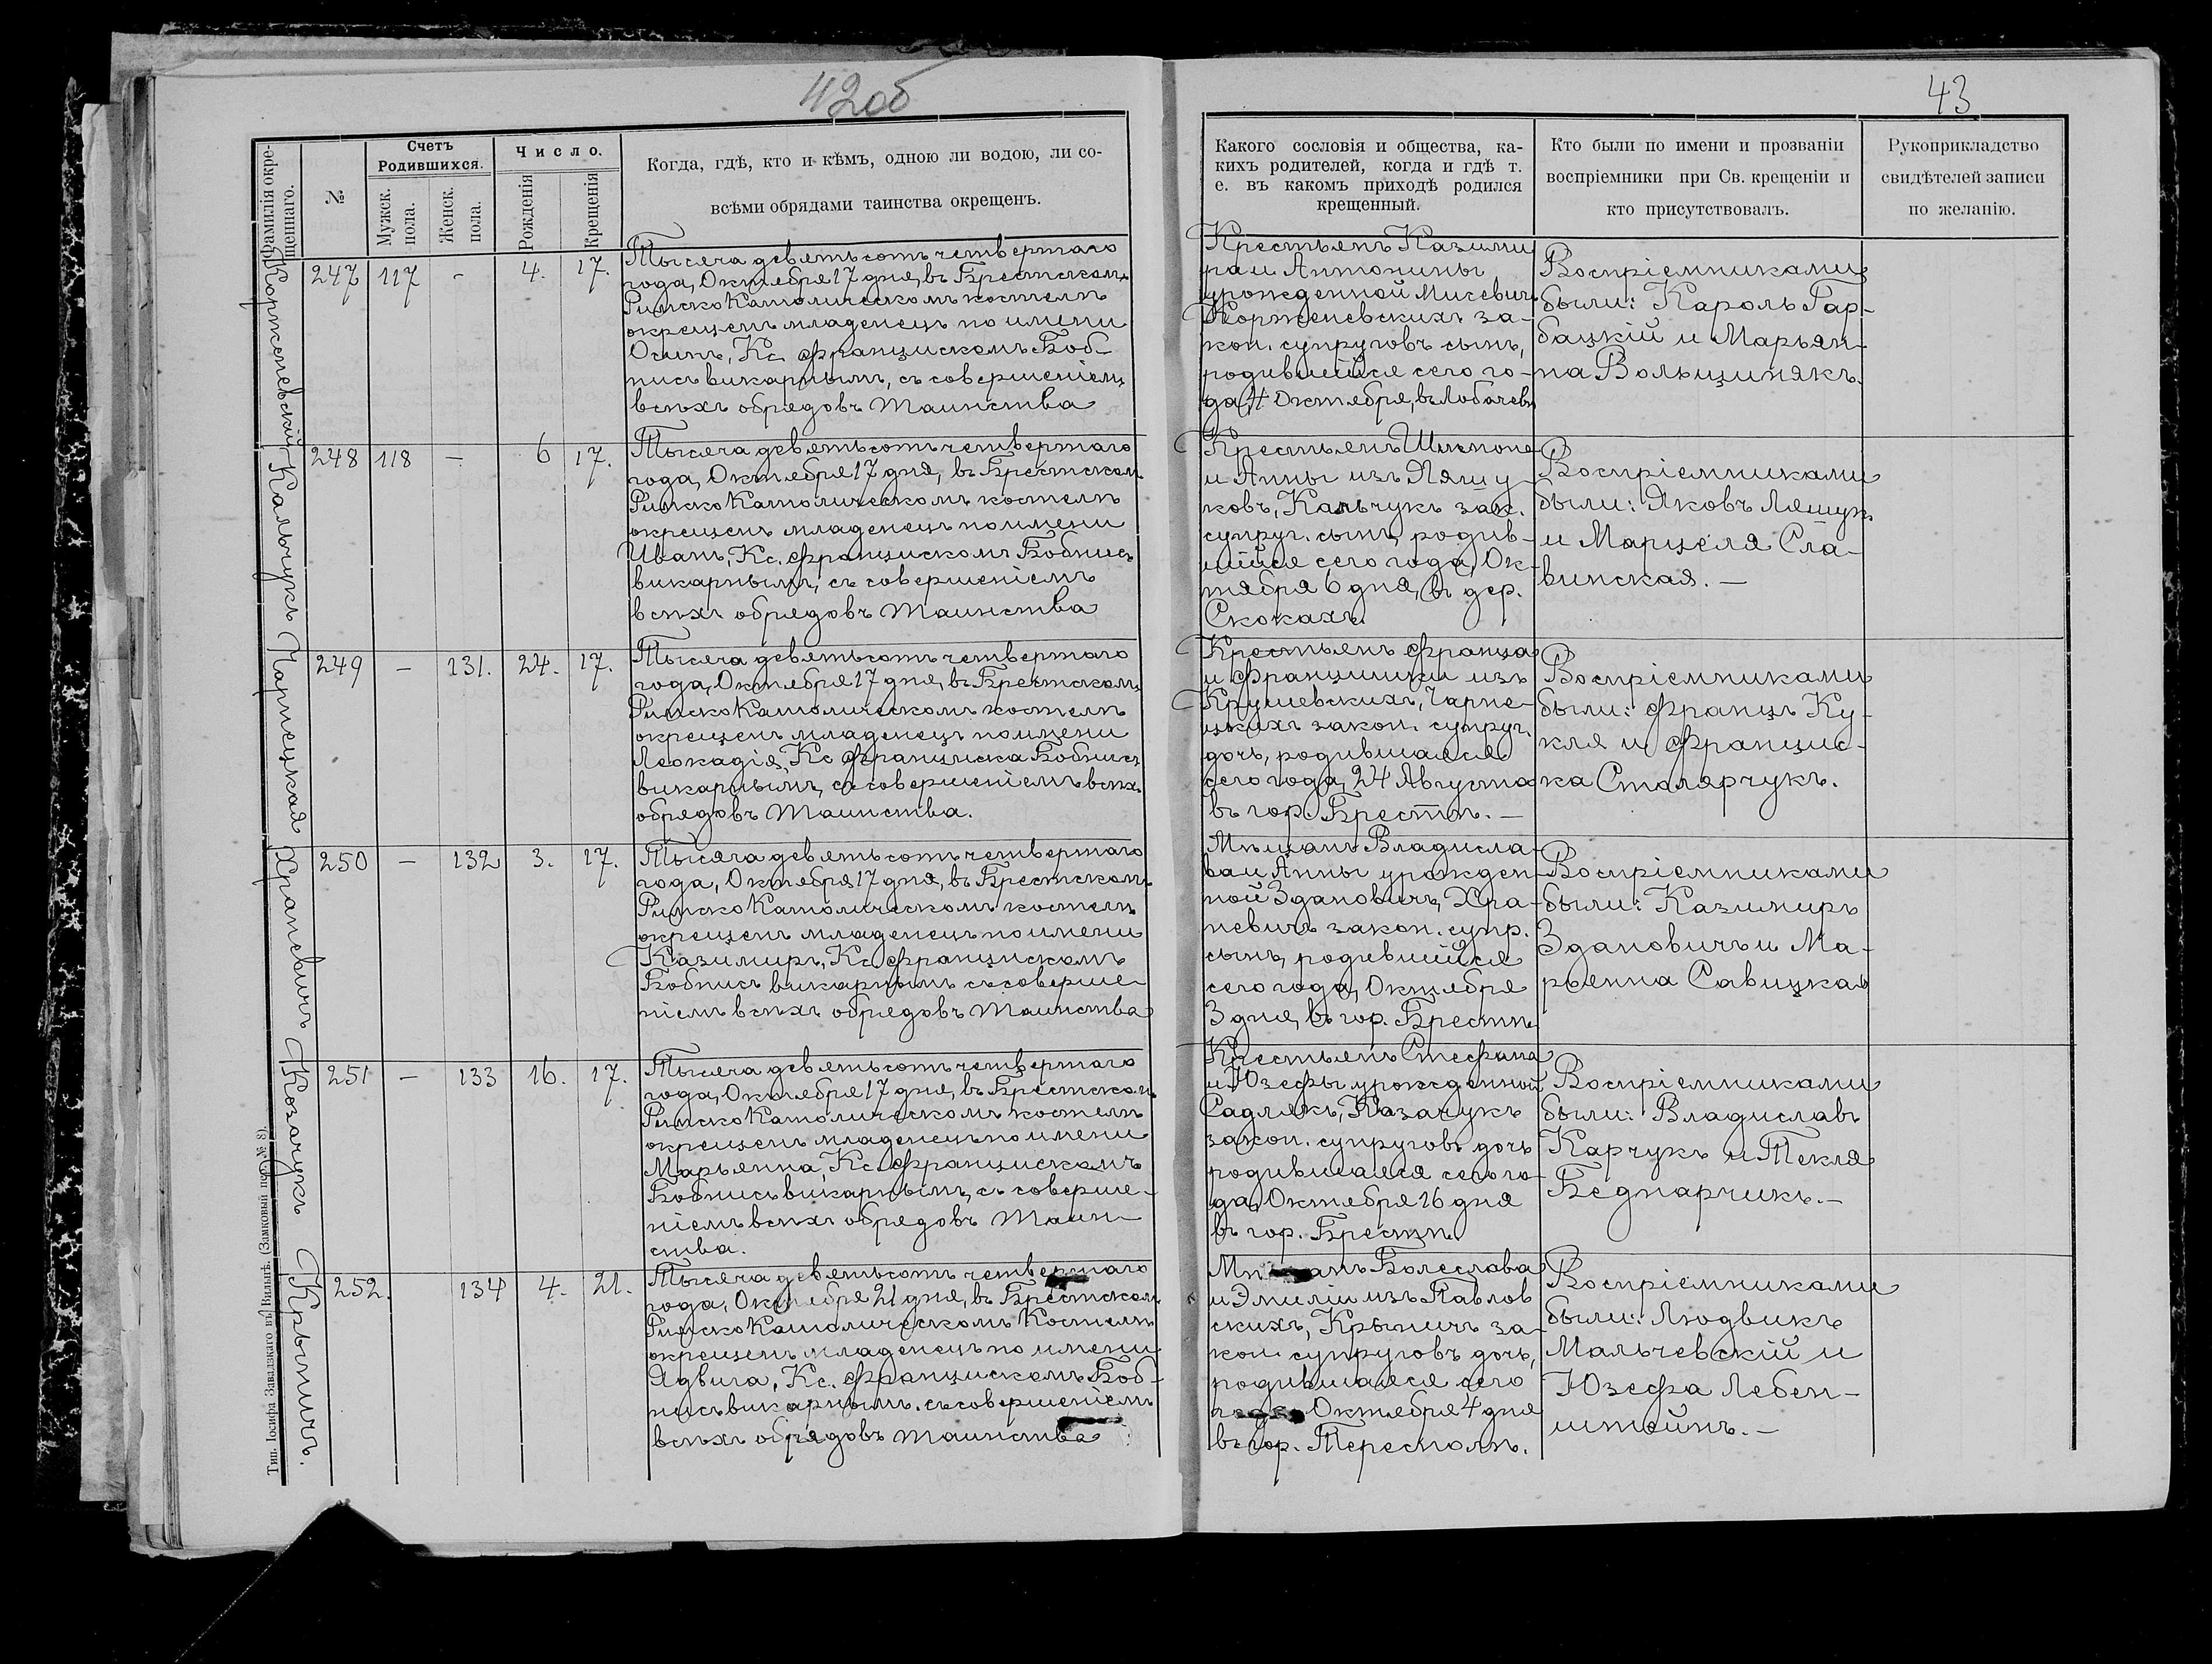 42об
43
Фамилія окре-
щеннаго.
№
Счетъ
Родившихся.
Мужск.
пола.
Женск.
пола.
Число.
Рожденія
Крещенія
Когда, гдѣ, кто и кѣмъ, одною ли водою, ли со-
всѣми обрядами таинства окрещенъ.
Какого сословія и общества, ка-
кихъ родителей, когда и гдѣ т.
е. въ какомъ приходѣ родился
крещенный.
Кто были по имени и прозванію
воспріемники при Св. крещеніи и
кто присутствовалъ.
Рукоприкладство
свидѣтелей записи
по желанію.
Корженевскій
247 117 - 4. 17.
Тысяча девятьсотъ четвертаго
года, Октября 17 дня, въ Брестскомъ
Римско Католическомъ костелѣ
окрещенъ младенецъ по имени
Осипъ, Кс. Францискомъ Боб-
нисъ викарнымъ, съ совершеніемъ
всѣхъ обрядовъ таинства
Крестьянъ Казими
ра и Антонины
урожденной Мисевичъ
Корженевскихъ за-
кон. супруговъ сынъ,
родившійся сего го-
да, 4 Октября, въ Лобачевѣ
Воспріемниками
были: Кароль Гар-
бацкій и Марьян-
на Вольщинякъ.
Кальчукъ
248 118 - 6 17.
Тысяча девятьсотъ четвертаго
года, Октября 17 дня, въ Брестскомъ
Римско Католическомъ костелѣ
окрещенъ младенецъ по имени
Иванъ, Кс. Францискомъ Бобнисъ
викарнымъ, съ совершеніемъ
всѣхъ обрядовъ таинства
Крестьянъ Шимона
и Анны изъ Ляшу-
ковъ, Кальчукъ зак.
супруг. сынъ, родив-
шійся сего года, Ок-
тября 6 дня, въ дер.
Скокахъ.
Воспріемниками
были: Яковъ Ляшукъ
и Марцеля Сла-
винская. -
Чарнецкая
249 - 131. 24. 17.
Тысяча девятьсотъ четвертаго
года, Октября 17 дня, въ Брестскомъ
Римско Католическомъ костелѣ
окрещенъ младенецъ по имени
Леокадія, Кс Франциска Бобнисъ
викарнымъ, съ совершеніемъ всѣхъ
обрядовъ таинства.
Крестьянъ Франца
и Францишки изъ
Крушевскихъ, Чарне-
цкихъ закон. супруг.
дочь, родившаяся
сего года, 24 Августа
въ гор. Брестѣ. -
Воспріемниками
были: Францъ Ку-
кля и Францис-
ка Столярчукъ.
Храпевичъ
250 - 132 3. 17.
Тысяча девятьсотъ четвертаго
года, Октября 17 дня, въ Брестскомъ
Римско Католическомъ костелѣ
окрещенъ младенецъ по имени
Казимиръ, Кс. Францискомъ
Бобнисъ викарнымъ съ соверше-
ніемъ всѣхъ обрядовъ таинства
Мѣщанъ Владисла-
ва и Анны урожден-
ной Здановичъ, Хра-
певичъ закон. супр.
сынъ, родившійся
сего года, Октября
3 дня, въ гор. Брестѣ
Воспріемниками
были: Казимиръ
Здановичъ и Ма-
рьянна Савицкая
Козачукъ
251 - 133 16. 17.
Тысяча девятьсотъ четвертаго
года, Октября 17 дня, въ Брестскомъ
Римско Католическомъ костелѣ
окрещенъ младенецъ по имени
Марьянна, Кс. Францискомъ
Бобнисъ викарнымъ, съ соверше-
ніемъ всѣхъ обрядовъ таин-
ства.
Крестьянъ Стефана
и Юзефы урожденной
Садлякъ, Казачукъ
закон. супруговъ дочь
родившаяся сего го-
да, Октября 16 дня
въ гор. Брестѣ.
Воспріемниками
были: Владиславъ
Карчукъ и Текля
Беднарчикъ. -
Крыничъ.
252. 134 4. 21.
Тысяча девятьсотъ четвертаго
года, Октября 21 дня, въ Брестскомъ
Римско Католическомъ Костелѣ
окрещенъ младенецъ по имени
Ядвига, Кс. Францискомъ Боб-
нисъ викарнымъ, съ совершеніемъ
всѣхъ обрядовъ таинства
Мѣщанъ Болеслава
и Эмиліи изъ Павлов
скихъ, Крыничъ за-
кон. супруговъ дочь,
родившаяся сего
года Октября 4 дня
въ гор. Тересполѣ.
Воспріемниками
были: Людвикъ
Мальчевскій и
Юзефа Лебен-
штейнъ. -
Тип. Іосифа Завадзкаго въ Вильнѣ. (Замковый пер. № 8).